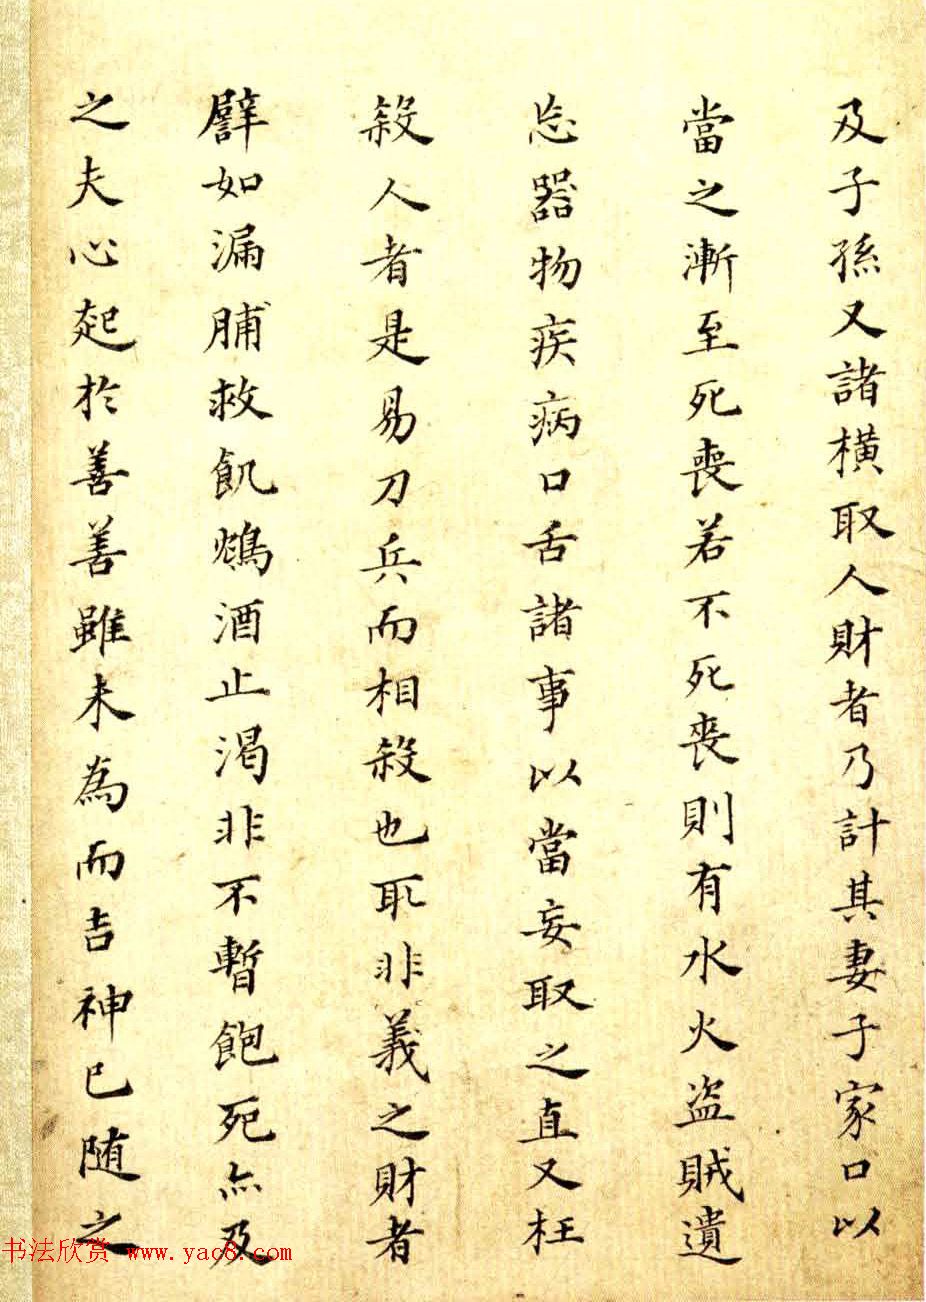 及子孫又諸橫取人財者乃計其妻子家口以
當之漸至死喪若不死喪則有水火盜賊遺
忘器物疾病口舌諸事以當妄取之直又枉
殺人者是易刀兵而相殺也取非義之財者
譬如漏脯救飢鴆酒止渴非不暫飽死亦及
之夫心起於善善雖未為而吉神已随之
书法欣赏 www.yac8.com